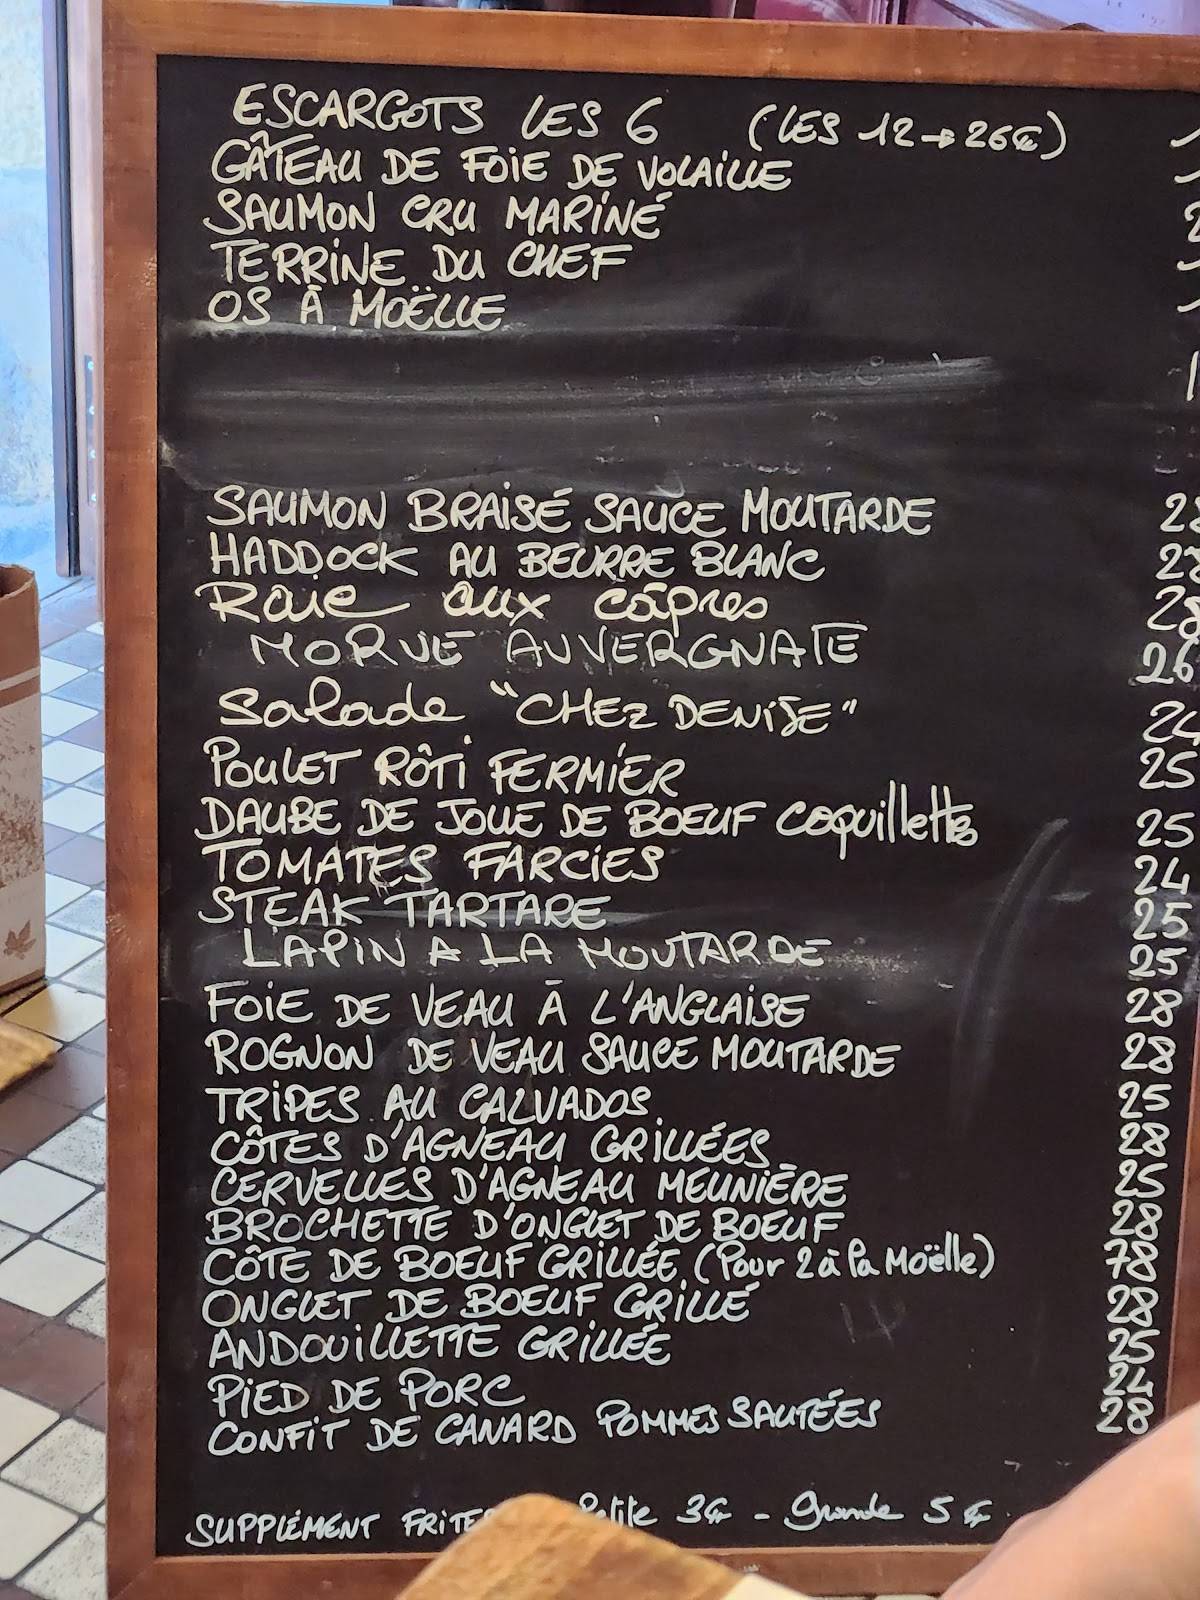 ESCARGOTS LES 6 (LES 12 → 26€)
GÂTEAU DE FOIE DE VOLAILLE
SAUMON CRU MARINÉ
TERRINE DU CHEF
OS À MOËLLE
SAUMON BRAISÉ SAUCE MOUTARDE
HADDOCK AU BEURRE BLANC
Raie aux câpres 28
MORUE AUVERGNATE 26
Salade "CHEZ DENISE" 24
POULET RÔTI FERMIER 25
DAUBE DE JOUE DE BOEUF coquillettes 25
TOMATES FARCIES 24
STEAK TARTARE 25
LAPIN A LA MOUTARDE 25
FOIE DE VEAU À L'ANGLAISE 28
ROGNON DE VEAU SAUCE MOUTARDE 28
TRIPES AU CALVADOS 25
CÔTES D'AGNEAU GRILLÉES 28
CERVELLES D'AGNEAU MEUNIÈRE 25
BROCHETTE D'ONGLET DE BOEUF 28
CÔTE DE BOEUF GRILLÉE (Pour 2 à la Moëlle) 78
ONGLET DE BOEUF GRILLÉ 28
ANDOUILLETTE GRILLÉE 25
PIED DE PORC 24
CONFIT DE CANARD POMMES SAUTÉES 28
SUPPLÉMENT FRITE Petite 3€ - Grande 5€